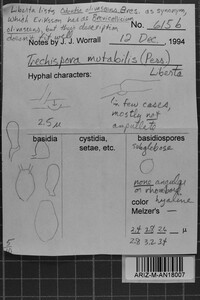 Liberta lists Odontia olivascens Bres. as synonym,
which Eriksson holds
olivascens, but this description
doesn't fit well
No. 6156
Notes by J. J. Worrall 12 Dec, 1994
Trechispora mutabilis (Pers.)
Liberta
Hyphal characters:
in few cases,
mostly not
ampullate
2.5 µ
basidia
cystidia,
setae, etc.
basidiospores
subglobose
none angular
or rhomboid
color hyaline
Melzer's —
µ
ARIZ-M-AN18007